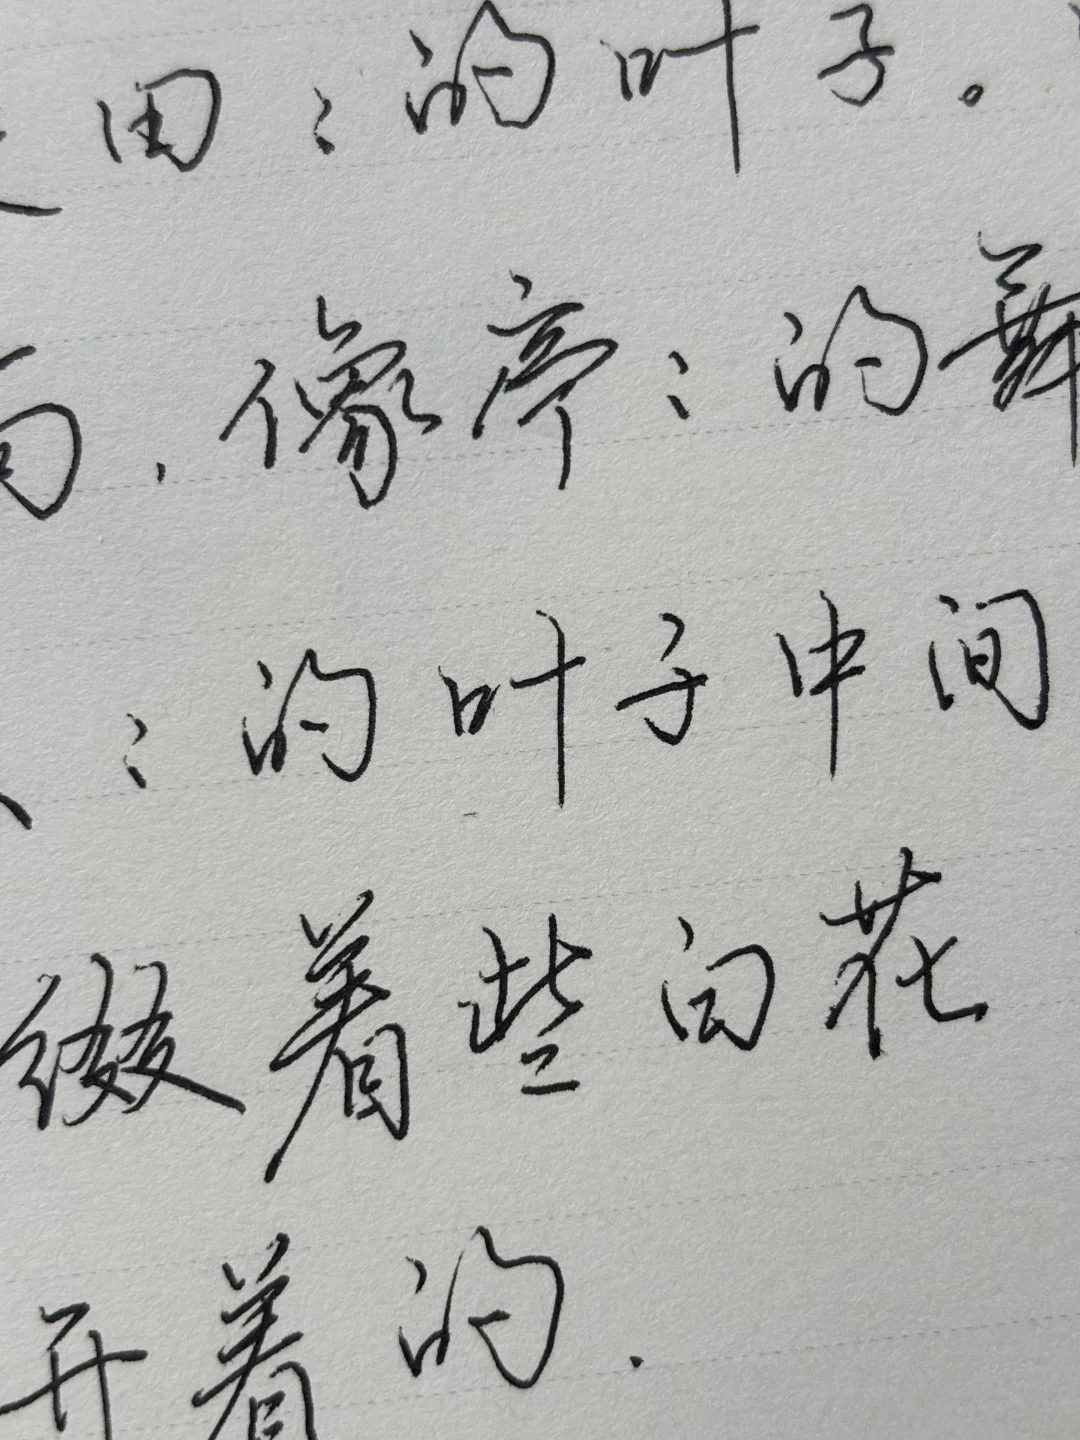 田：的叶子。
，像亭：的舞
：的叶子中间
缀着些白花
开着的，